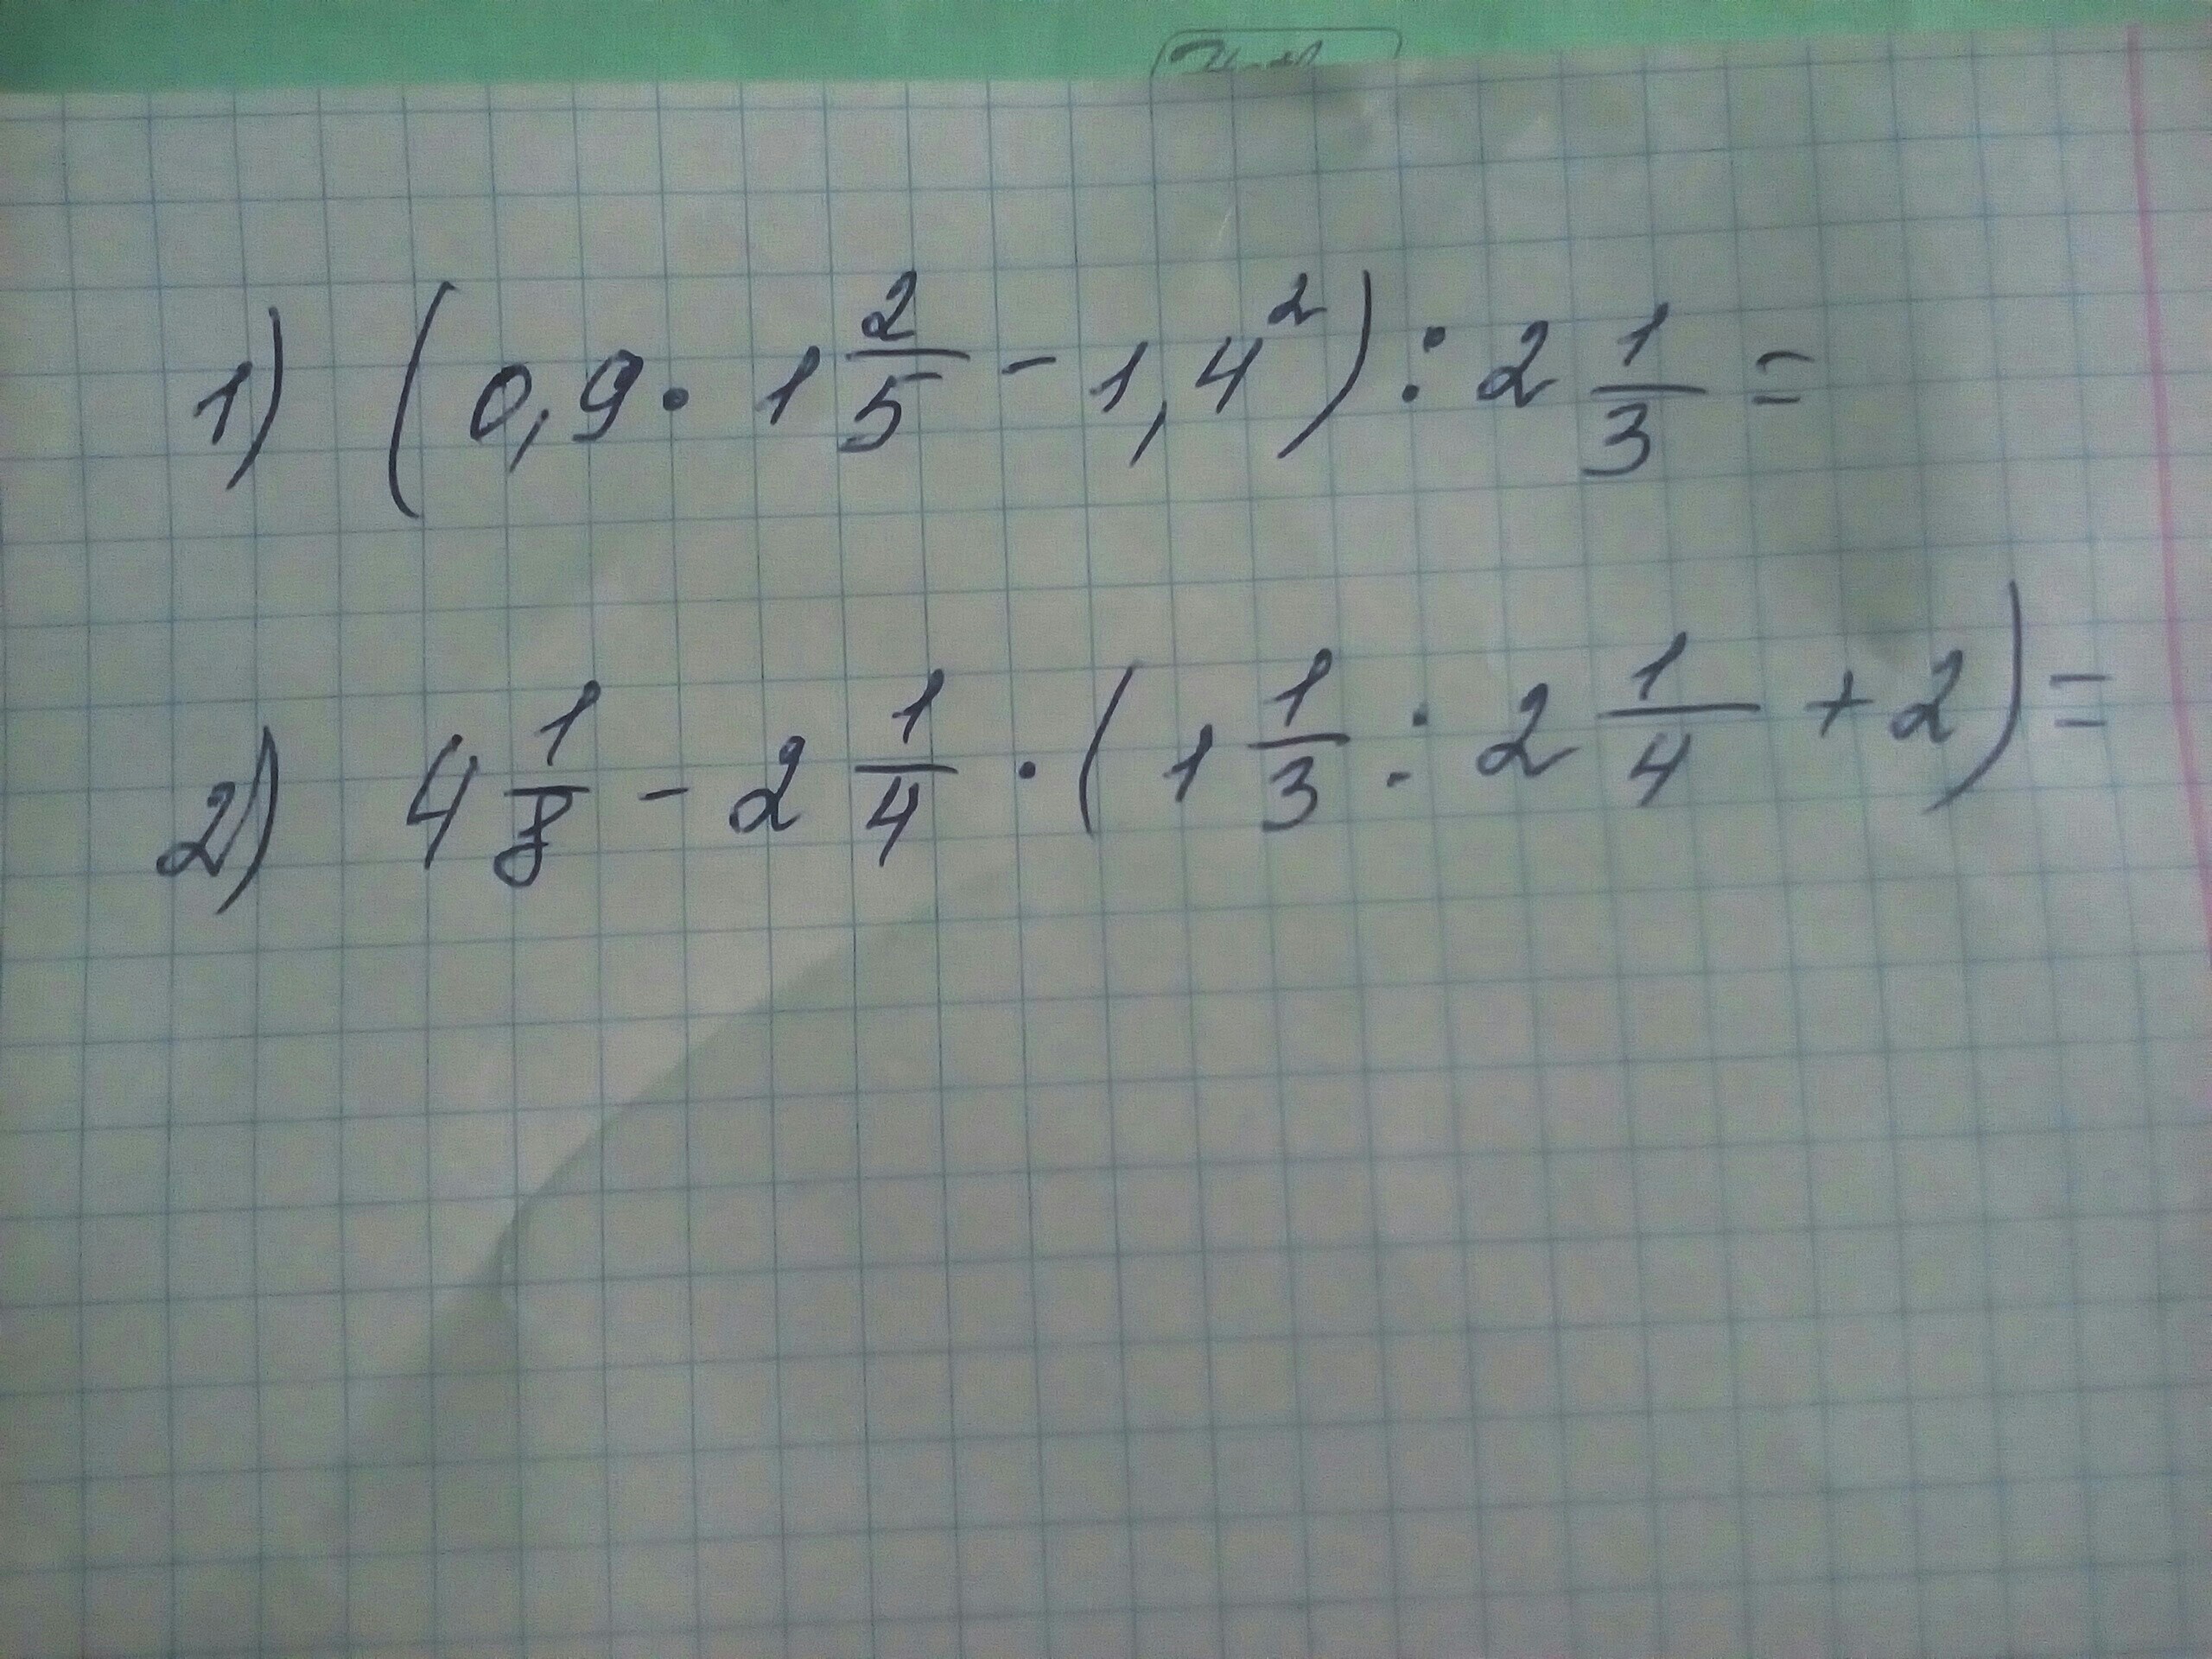 1) (0,9 · 1 2/5 - 1,4²) : 2 1/3 =
2) 4 1/8 - 2 1/4 · (1 1/3 : 2 1/4 + 2) =